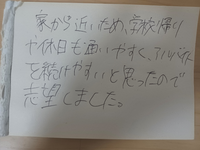 家から近いため、学校帰り
や休日も通いやすく、アルバイト
を続けやすいと思ったので
志望しました。